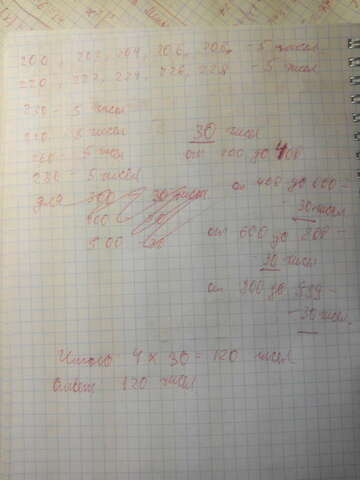 200, 202, 204, 206, 208, - 5 чисел
220, 222, 224, 226, 228 - 5 чисел
230 - 5 чисел
220 - 5 чисел
260 - 5 чисел
280 - 5 чисел
30 чисел
от 200 до 400
от 400 до 600 -
30 чисел
от 600 до 800 -
30 чисел
от 800 до 899 -
- 30 чисел
для 300
500
Итого 4 x 30 = 120 чисел
Ответ 120 чисел